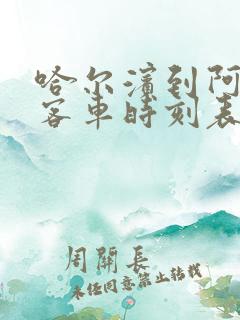 哈尔滨到阿
客车时刻表
周關長
未经同意禁止转载